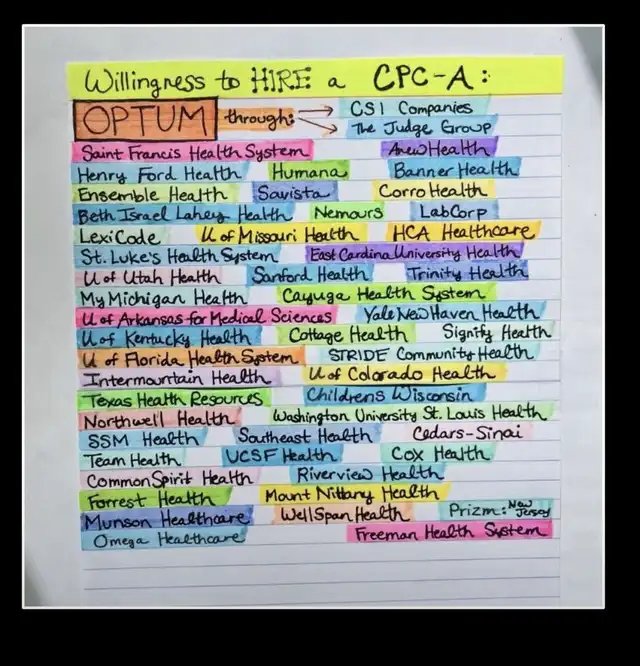 Willingness to HIRE a CPC-A:
OPTUM through: → CSI Companies
→ The Judge Group
Saint Francis Health System AnewHealth
Henry Ford Health Humana Banner Health
Ensemble Health Savista CorroHealth
Beth Israel Lahey Health Nemours LabCorp
LexiCode U of Missouri Health HCA Healthcare
St. Luke's Health System East Cardina University Health
U of Utah Health Sanford Health Trinity Health
My Michigan Health Cayuga Health System
U of Arkansas for Medical Sciences Yale New Haven Health
U of Kentucky Health Cottage Health Signify Health
U of Florida Health System STRIDE Community Health
Intermountain Health U of Colorado Health
Texas Health Resources Childrens Wisconsin
Northwell Health Washington University St. Louis Health
SSM Health Southeast Health Cedars-Sinai
Team Health UCSF Health Cox Health
CommonSpirit Health Riverview Health
Forrest Health Mount Nittany Health
Munson Healthcare WellSpan Health Prizm: New Jersey
Omega Healthcare Freeman Health System